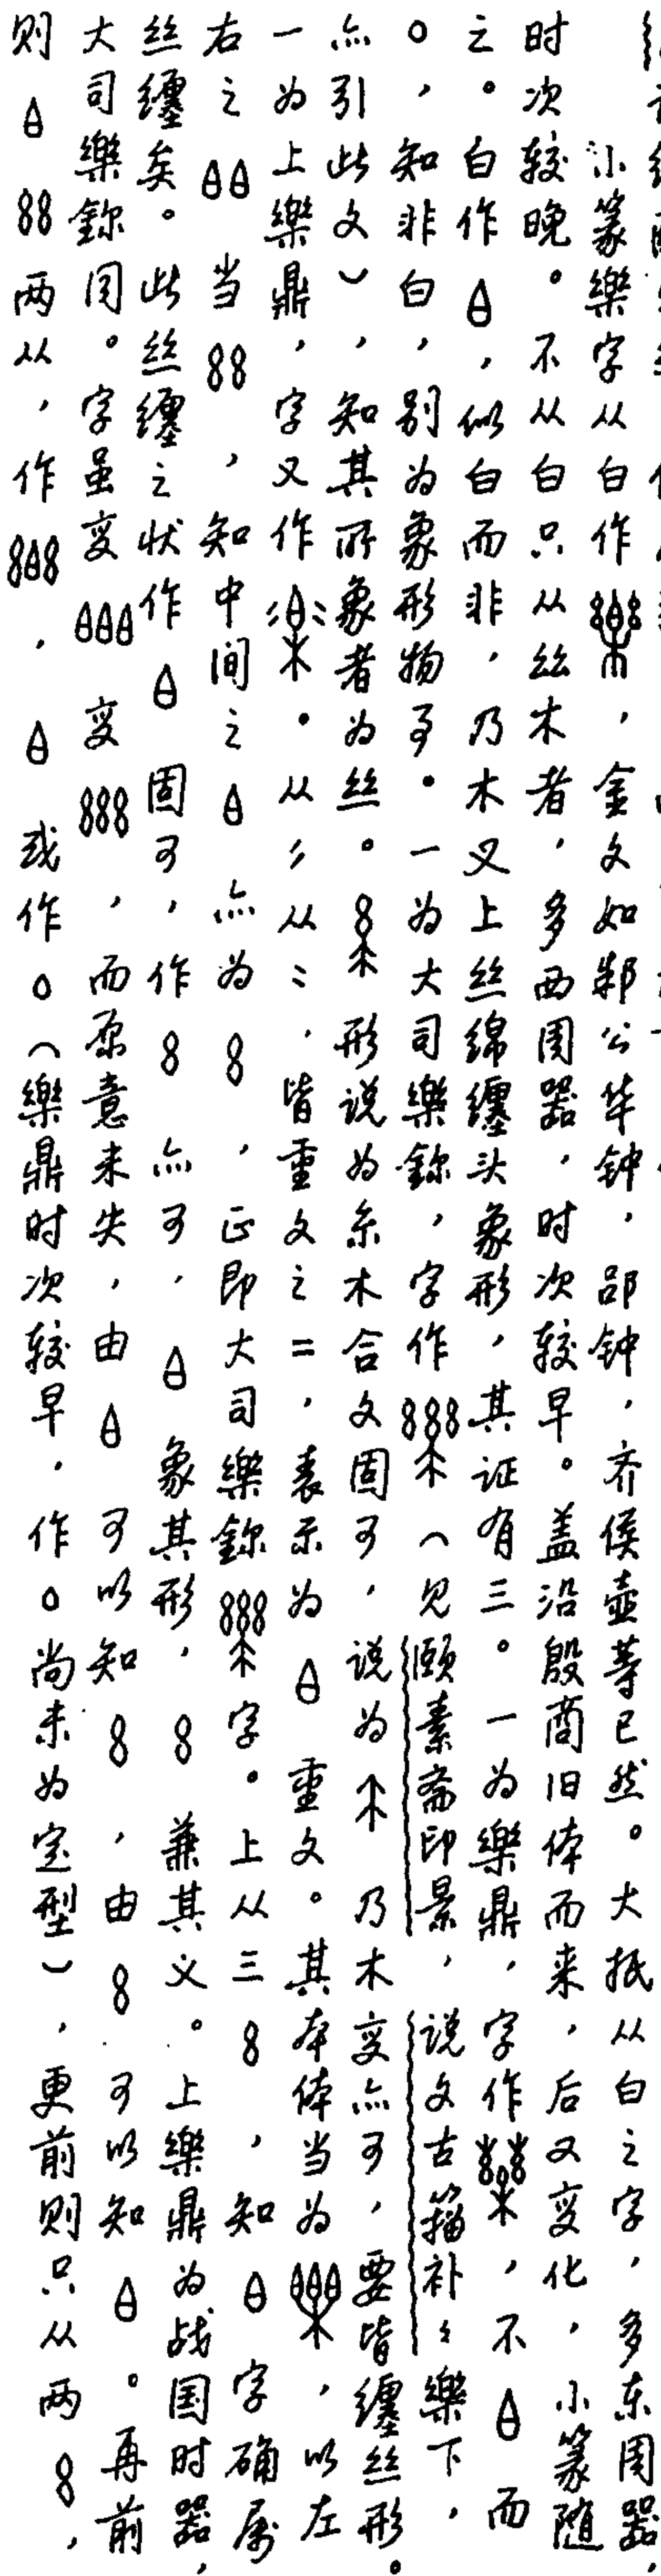 小篆樂字从白作，金文如邾公华钟，邵钟，齐侯壶等已然。大抵从白之字，多东周器，
时次较晚。不从白只从絲木者，多西周器，时次较早。盖沿殷商旧体而来，后又变化，小篆随
之。白作，似白而非，乃木叉上丝绵缠头象形，其证有三。一为樂鼎，字作，不而
○，知非白，别为象形物事。一为大司樂鉨，字作（见颐素斋印景，说文古籀补补樂下，
亦引此文），知其所象者为丝。形说为系木合文固可，说为乃木变亦可，要皆缠丝形。
一为上樂鼎，字又作。从从，皆重文之＝，表示为重文。其本体当为，以左
右之当，知中间之亦为，正即大司樂鉨字。上从三，知字确属
丝缠矣。此丝缠之状作固可，作亦可，象其形，兼其义。上樂鼎为战国时器，
大司樂鉨同。字虽变变，而原意未失，由可以知，由可以知。再前
则两从，作，或作○（樂鼎时次较早，作○尚未为定型），更前则只从两，